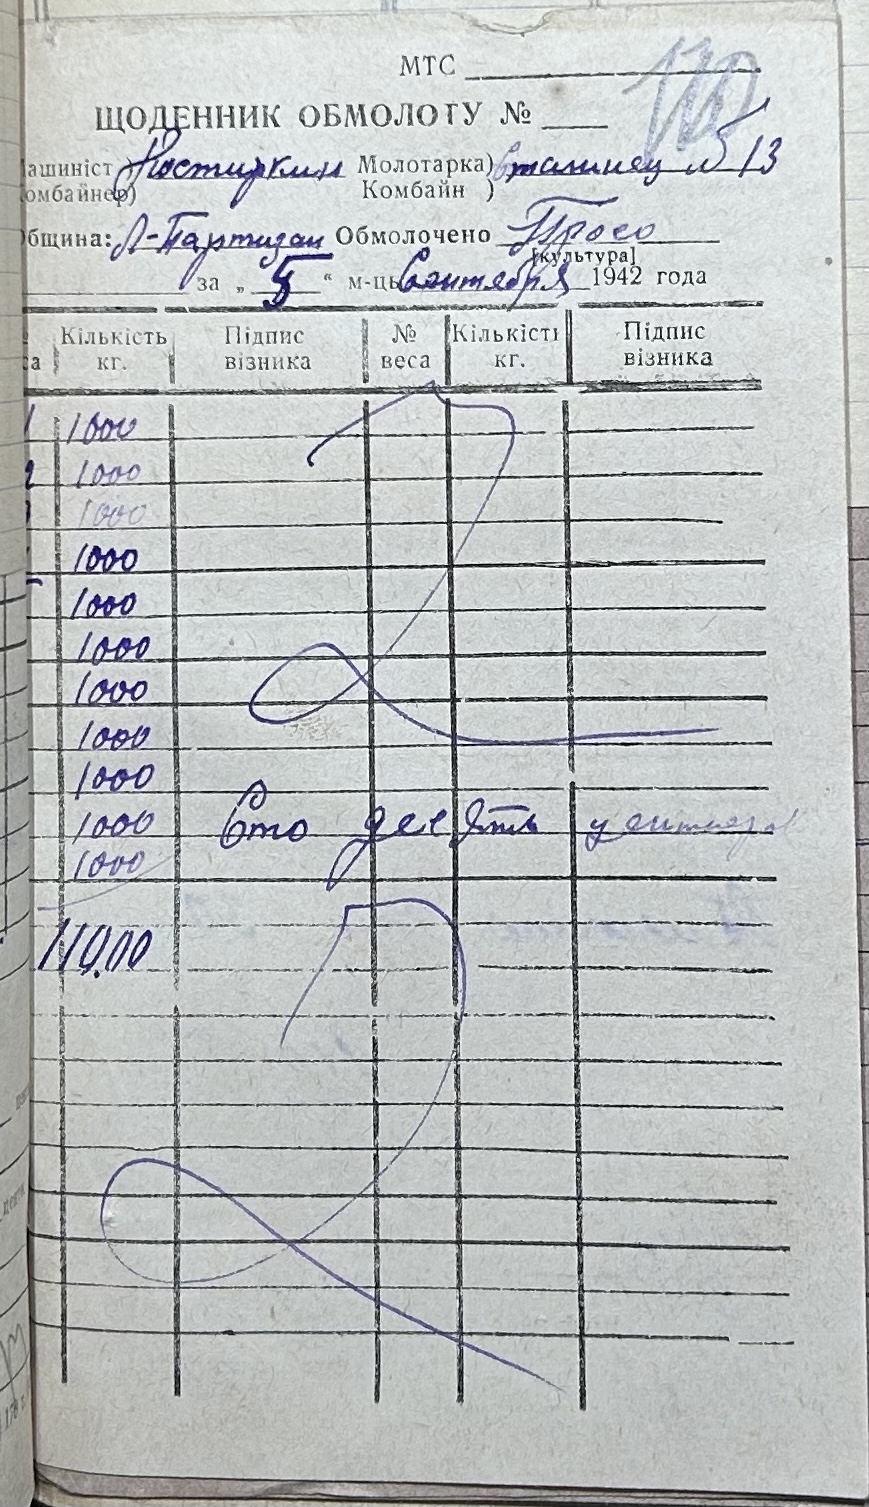 МТС
110
ЩОДЕННИК ОБМОЛОТУ №
Машиніст Молотарка) Сталинец № 13
Комбайнер) Комбайн )
Община: Л-Партизан Обмолочено Просо
[культура]
за „ 5 “ м-ць Сентября 1942 года
Кількість кг. Підпис візника № веса Кількість кг. Підпис візника
1 1000
2 1000
1000
1000
5 1000
1000
1000
1000
1000
1000 Сто десять центнеров
1000
110.00